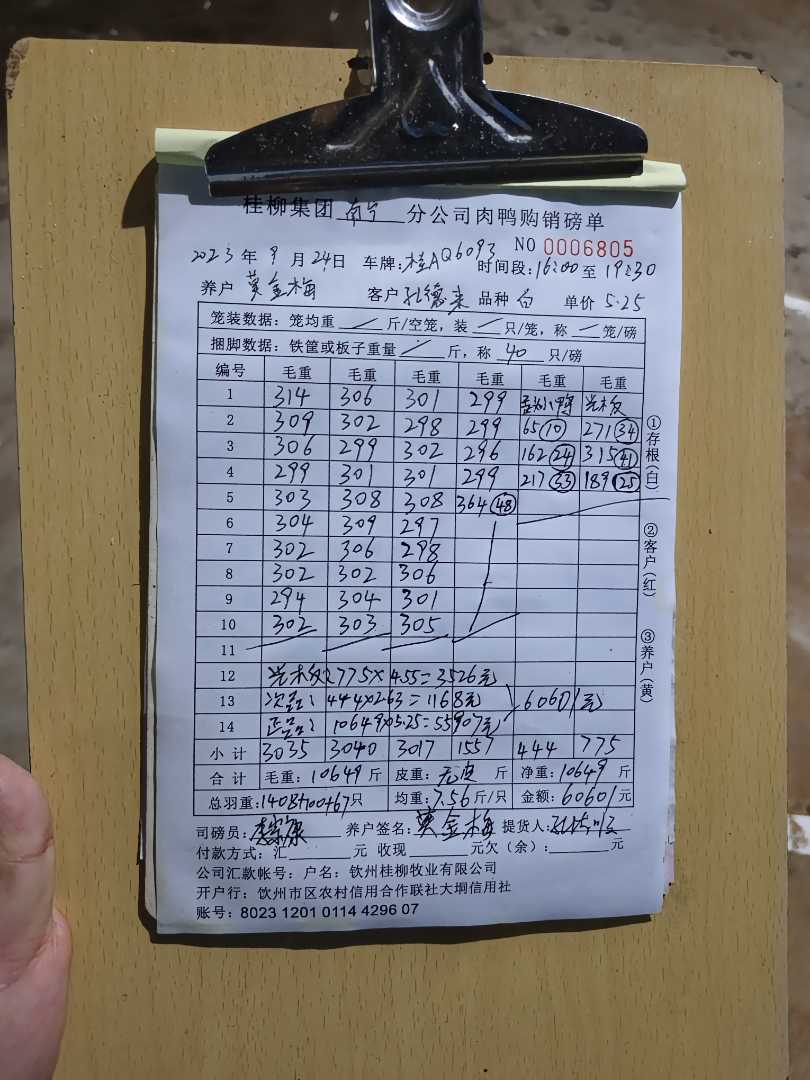 桂柳集团 南宁 分公司肉鸭购销磅单
NO 0006805
2023 年 9 月 24日 车牌: 桂AQ6093 时间段: 16:00 至 19:30
养户 黄金梅 客户 孔德来 品种 白 单价 5.25
笼装数据: 笼均重 / 斤/空笼, 装 / 只/笼, 称 / 笼/磅
捆脚数据: 铁筐或板子重量 / 斤, 称 40 只/磅
编号 毛重 毛重 毛重 毛重 毛重 毛重
1 314 306 301 299 小鸭 光板
2 309 302 298 299 65(10) 271(34)
3 306 299 302 296 162(24) 315(41)
4 299 301 301 299 217(33) 189(25)
5 303 308 308 364(48)
6 304 309 297
7 302 306 298
8 302 302 306
9 294 304 301
10 302 303 305
11
12 光板: 775×4.55=3526元
13 次品: 444×2.63=1168元 60601元
14 正品: 10649×5.25=55907元
小计 3035 3040 3017 1557 444 775
合计 毛重: 10649 斤 皮重: 无皮 斤 净重: 10649 斤
总羽重: 1408+100+67只 均重: 7.56斤/只 金额: 60601元
司磅员: 养户签名: 黄金梅 提货人:
付款方式: 汇 元 收现 元欠(余): 元
公司汇款帐号: 户名: 钦州桂柳牧业有限公司
开户行: 饮州市区农村信用合作联社大垌信用社
账号: 8023 1201 0114 4296 07
①存根(白)
②客户(红)
③养户(黄)